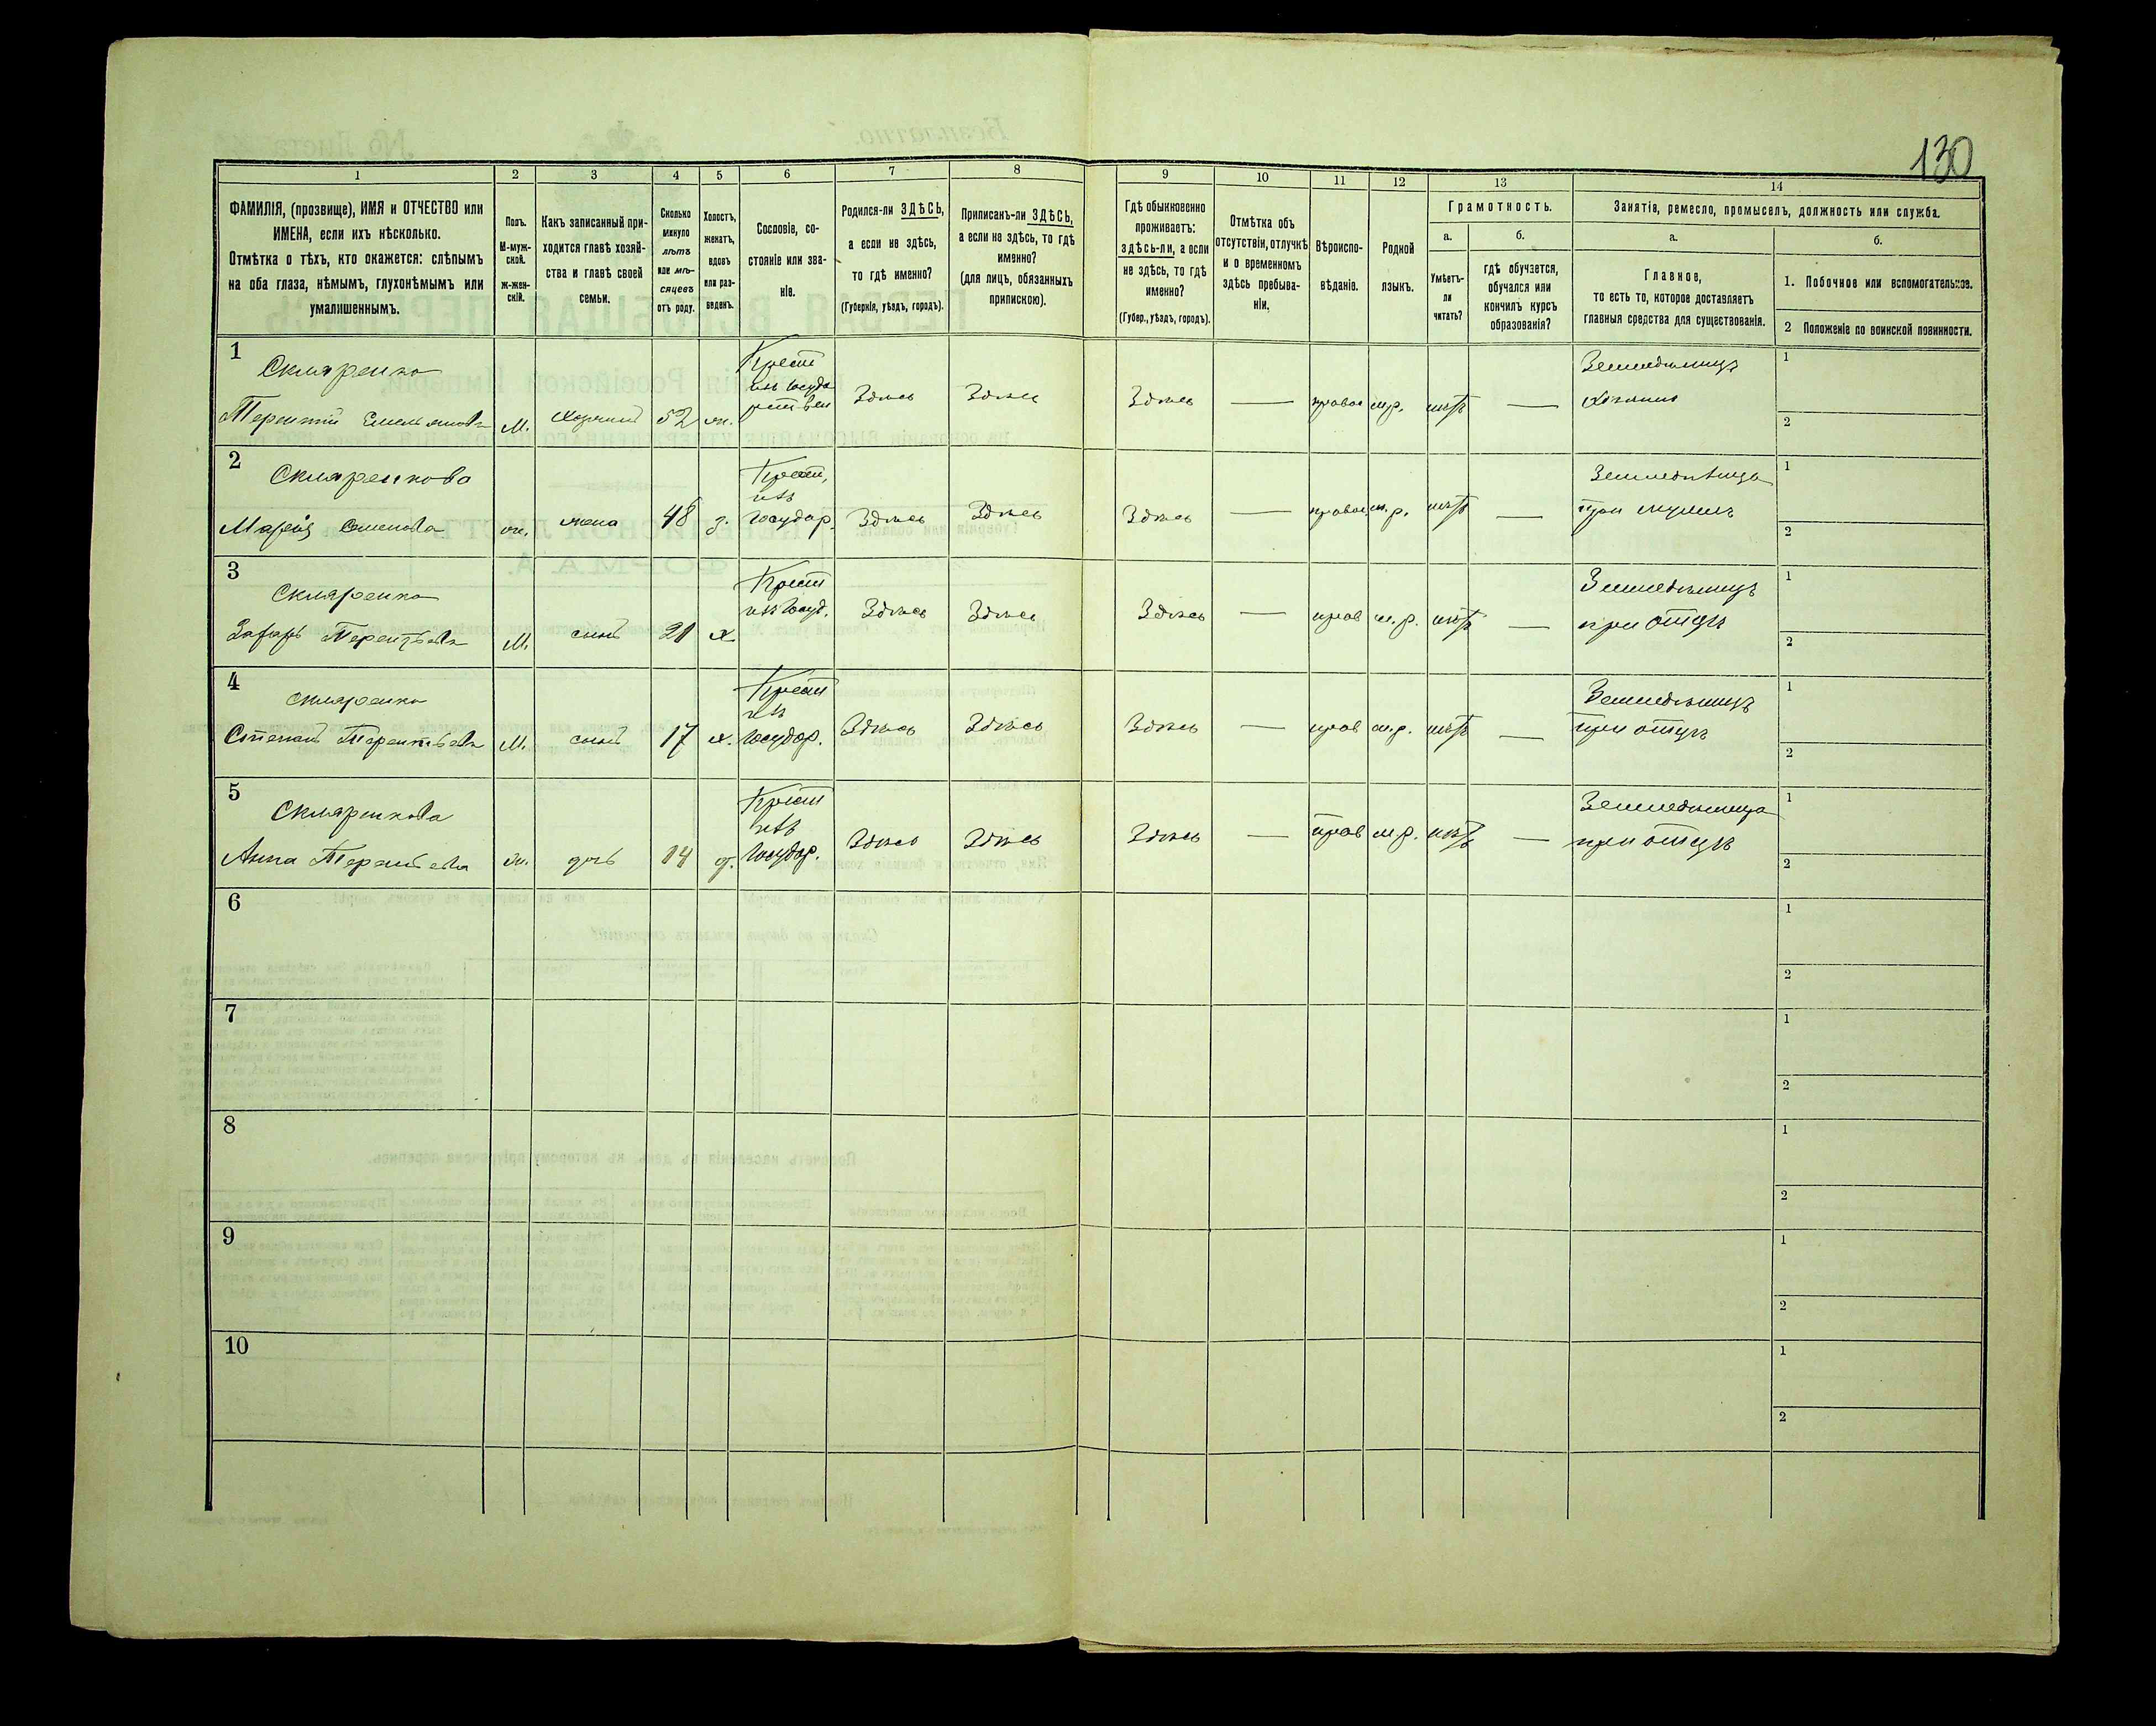 130
1
2
3
4
5
6
7
8
9
10
11
12
13
14
ФАМИЛІЯ, (прозвище), ИМЯ и ОТЧЕСТВО или
ИМЕНА, если ихъ нѣсколько.
Отмѣтка о тѣхъ, кто окажется: слѣпымъ
на оба глаза, нѣмымъ, глухонѣмымъ или
умалишеннымъ.
Полъ.
М-муж-
ской.
ж-жен-
скій.
Какъ записанный при-
ходится главѣ хозяй-
ства и главѣ своей
семьи.
Сколько
минуло
лѣтъ
или мѣ-
сяцевъ
отъ роду.
Холостъ,
женатъ,
вдовъ
или раз-
веденъ.
Сословіе, со-
стояніе или зва-
ніе.
Родился-ли ЗДѢСЬ,
а если не здѣсь,
то гдѣ именно?
(Губернія, уѣздъ, городъ).
Приписанъ-ли ЗДѢСЬ,
а если не здѣсь, то гдѣ
именно?
(для лицъ, обязанныхъ
припискою).
Гдѣ обыкновенно
проживаетъ:
здѣсь-ли, а если
не здѣсь, то гдѣ
именно?
(Губер., уѣздъ, городъ).
Отмѣтка объ
отсутствіи, отлучкѣ
и о временномъ
здѣсь пребыва-
ніи.
Вѣроиспо-
вѣданіе.
Родной
языкъ.
Грамотность.
а.
Умѣетъ-
ли
читать?
б.
гдѣ обучается,
обучался или
кончилъ курсъ
образованія?
Занятія, ремесло, промыселъ, должность или служба.
а.
Главное,
то есть то, которое доставляетъ
главныя средства для существованія.
б.
1. Побочное или вспомогательное.
2 Положеніе по воинской повинности.
1
Скляренко
Терентій Емельяновъ
М. Хозяинъ 52 ж.
Крест
изъ Госуда
рствен
Здѣсь Здѣсь Здѣсь — правос м.р. нѣтъ —
Земледѣлецъ
хозяинъ
1
2
2
Скляренкова
Марія Семенова
ж. жена 48 з.
Крест.
изъ
Государ.
Здѣсь Здѣсь Здѣсь — правос. м.р. нѣтъ —
Земледѣлица
при мужѣ
1
2
3
Скляренко
Захаръ Терентьевъ
М. сынъ 21 х
Крест
изъ Госуд.
Здѣсь Здѣсь Здѣсь — прав м.р. нѣтъ —
Земледѣлецъ
при отцѣ
1
2
4
Скляренко
Степанъ Терентьевъ
М. сынъ 17 х.
Крест
изъ
Государ.
Здѣсь Здѣсь Здѣсь — прав м.р. нѣтъ —
Земледѣлецъ
при отцѣ
1
2
5
Скляренкова
Анна Терентьева
ж. дочь 14 д.
Крест
изъ
Государ.
Здѣсь Здѣсь Здѣсь — прав м.р. нѣтъ —
Земледѣлица
при отцѣ
1
2
6
1
2
7
1
2
8
1
2
9
1
2
10
1
2